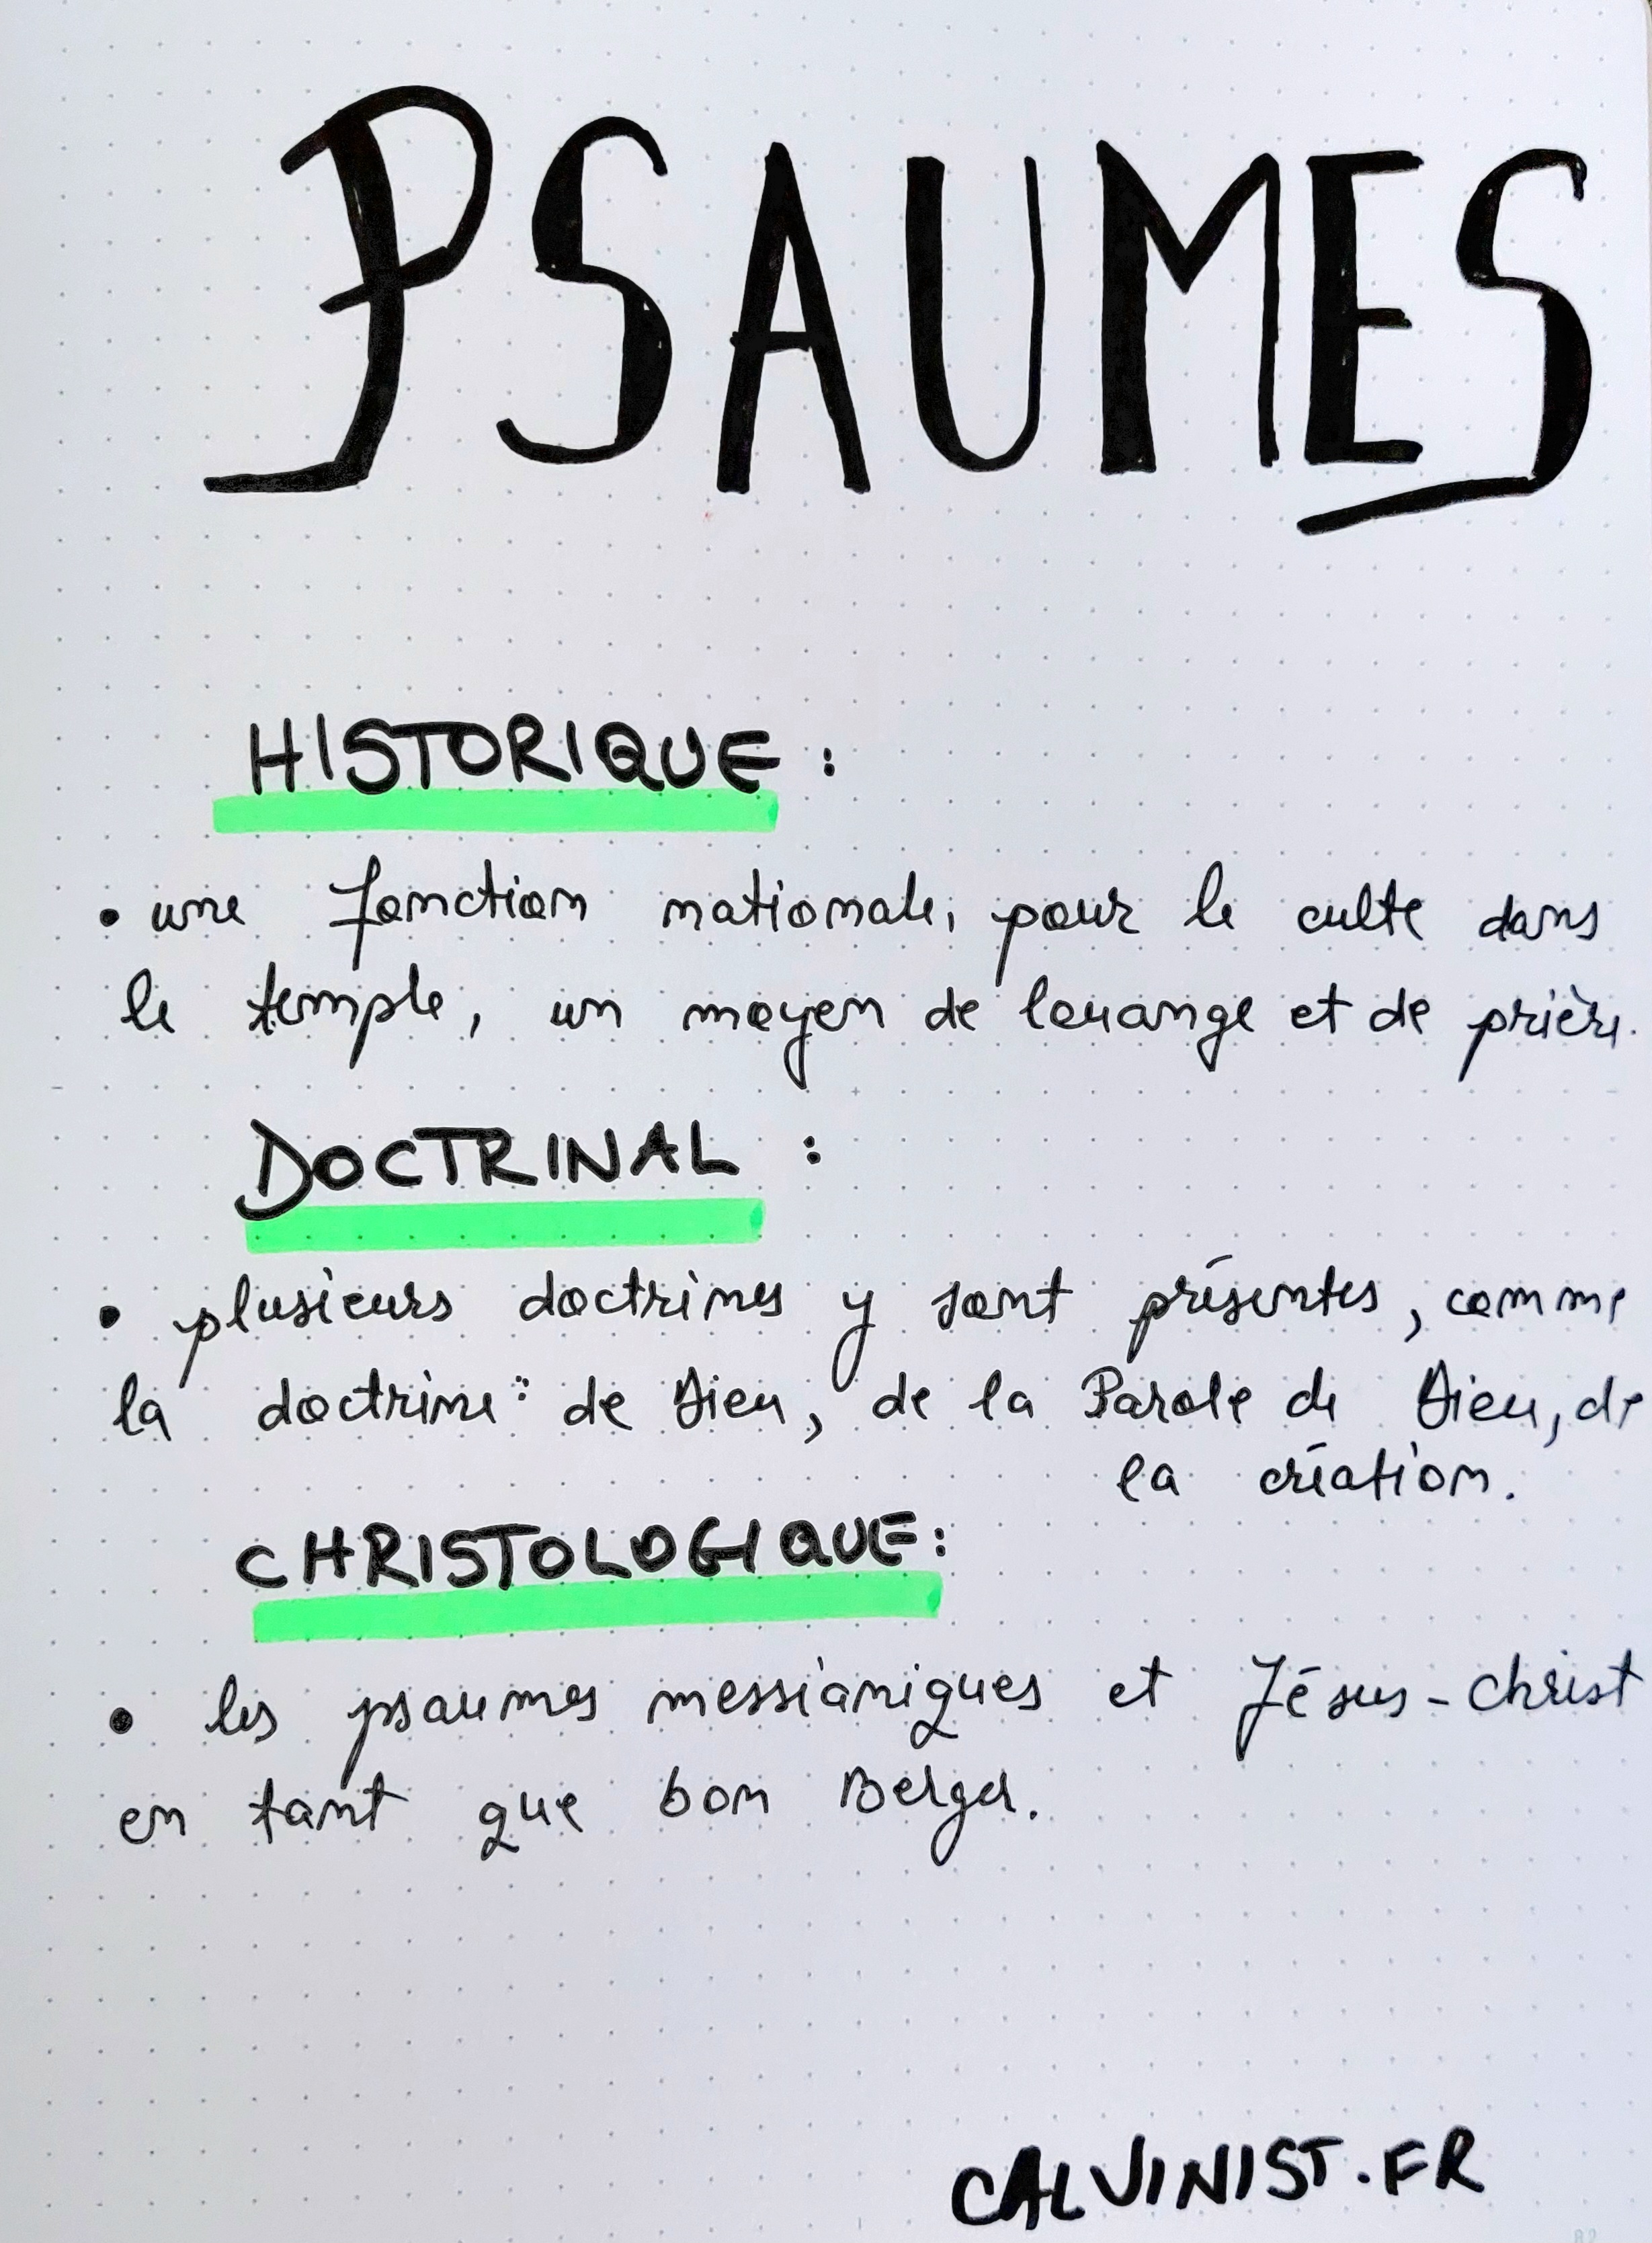 PSAUMES
HISTORIQUE :
• une fonction nationale, pour le culte dans
le temple, un moyen de louange et de prière.
DOCTRINAL :
• plusieurs doctrines y sont présentes, comme
la doctrine : de Dieu, de la Parole de Dieu, de
la création.
CHRISTOLOGIQUE :
• les psaumes messianiques et Jésus-Christ
en tant que bon Berger.
CALVINIST.FR